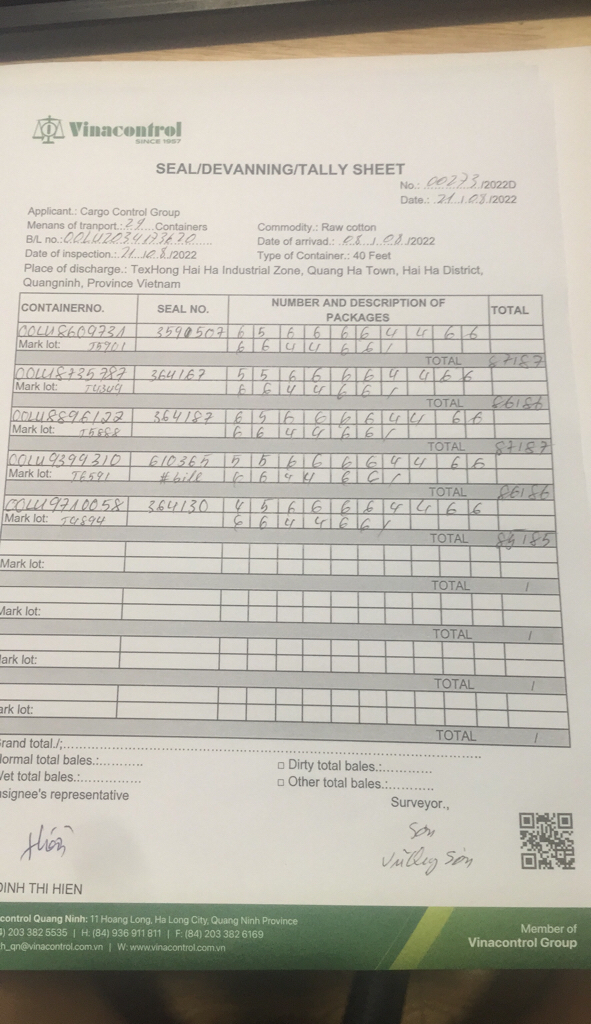 Vinacontrol
SINCE 1957
SEAL/DEVANNING/TALLY SHEET
No.: 00273/2022D
Date.: 21/08/2022
Applicant.: Cargo Control Group
Menans of tranport.: 29 Containers
Commodity.: Raw cotton
B/L no.: COLU2034173670
Date of arrivad.: 08/08/2022
Date of inspection.: 21/08/2022
Type of Container.: 40 Feet
Place of discharge.: TexHong Hai Ha Industrial Zone, Quang Ha Town, Hai Ha District,
Quangninh, Province Vietnam
CONTAINERNO. SEAL NO. NUMBER AND DESCRIPTION OF PACKAGES TOTAL
OOLU8609731 3590507 6 5 6 6 6 6 4 4 6 6
Mark lot: T5901 6 6 4 4 6 6 /
TOTAL 87187
OOLU8735787 364167 5 5 6 6 6 6 4 4 6 6
Mark lot: T4304 6 6 4 4 6 6 /
TOTAL 86186
OOLU8896122 364187 6 5 6 6 6 6 4 4 6 6
Mark lot: T5868 6 6 4 4 6 6 /
TOTAL 87187
OOLU9399310 610365 5 5 6 6 6 6 4 4 6 6
Mark lot: T6591 6 6 4 4 6 6 /
TOTAL 86186
OOLU9710058 364130 4 5 6 6 6 6 4 4 6 6
Mark lot: T4894 6 6 4 4 6 6 /
TOTAL 85185
Mark lot:
TOTAL /
Mark lot:
TOTAL /
ark lot:
TOTAL /
ark lot:
TOTAL /
rand total./;
ormal total bales.:
□ Dirty total bales.:
et total bales.:
□ Other total bales.:
nsignee's representative
Surveyor.,
Hiền
Sơn
Vương Sơn
DINH THI HIEN
control Quang Ninh: 11 Hoang Long, Ha Long City, Quang Ninh Province
4) 203 382 5535 | H: (84) 936 911 811 | F: (84) 203 382 6169
h_qn@vinacontrol.com.vn | W: www.vinacontrol.com.vn
Member of
Vinacontrol Group